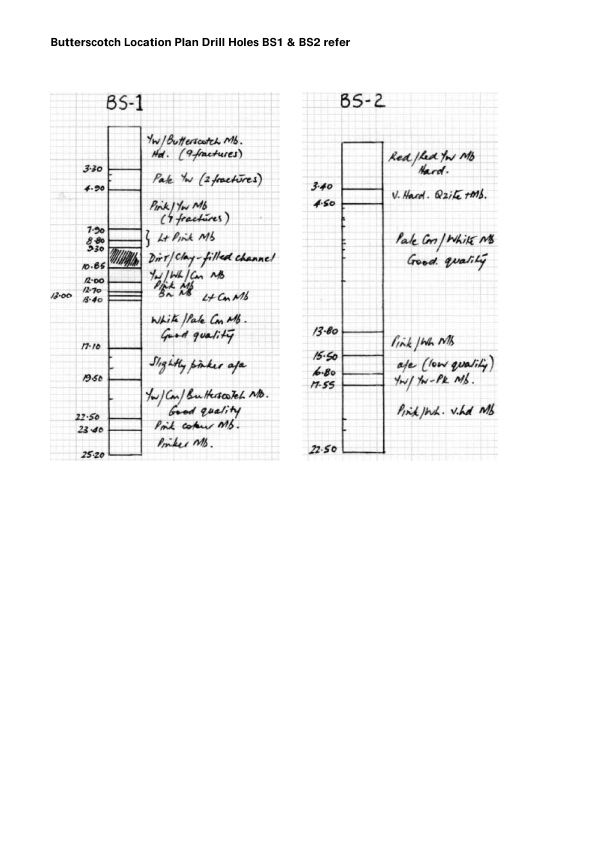 Butterscotch Location Plan Drill Holes BS1 & BS2 refer
BS-1
Yw/Butterscotch Mb.
Hd. (9 fractures)
3·30
Pale Yw (2 fractures)
4·90
Pink/Yw Mb
(7 fractures)
7·90
Lt Pink Mb
8·80
9·30
Dirt/Clay-filled channel
10·65
Yw/Wh/Cm Mb
12·00
Pink Mb
12·70
Bn Mb
13·00
Lt Cm Mb
13·40
White/Pale Cm Mb.
Good quality
17·10
Slightly pinker a/a
19·50
Yw/Cm/Butterscotch Mb.
Good quality
22·50
Pink colour Mb.
23·40
Pinker Mb.
25·20
BS-2
Red/Red Yw Mb
Hard.
3·40
V. Hard. Qzite + Mb.
4·50
Pale Cm/White Mb
Good quality
13·80
Pink/Wh Mb
15·50
a/a (low quality)
16·80
Yw/Yw-Pk Mb.
17·55
Pink/Wh. v.hd Mb
22·50